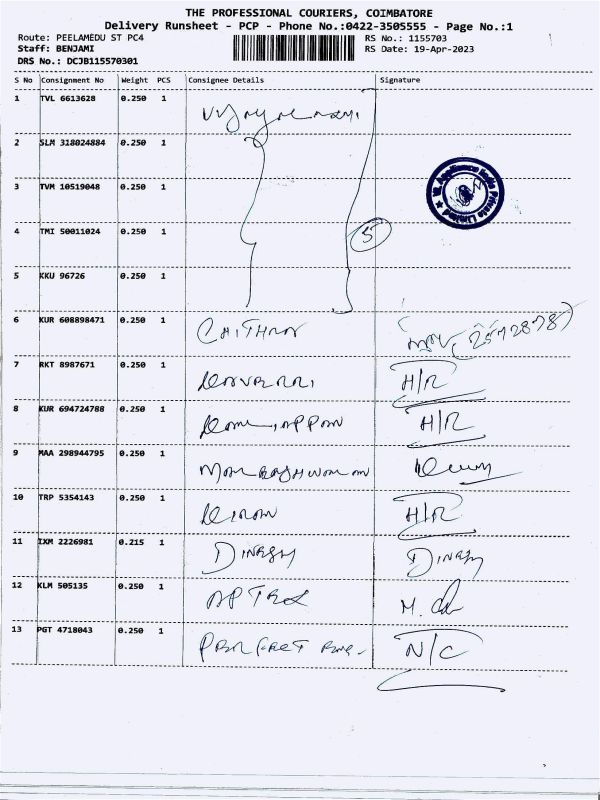 THE PROFESSIONAL COURIERS, COIMBATORE
Delivery Runsheet - PCP - Phone No.:0422-3505555 - Page No.:1
Route: PEELAMEDU ST PC4 RS No.: 1155703
Staff: BENJAMI RS Date: 19-Apr-2023
DRS No.: DCJB115570301
S No Consignment No Weight PCS Consignee Details Signature
1 TVL 6613628 0.250 1
2 SLM 318024884 0.250 1
3 TVM 10519048 0.250 1
4 TMI 50011024 0.250 1 5
5 KKU 96726 0.250 1
6 KUR 608898471 0.250 1 CHITHRA
7 RKT 8987671 0.250 1 H/R
8 KUR 694724788 0.250 1 H/R
9 MAA 298944795 0.250 1
10 TRP 5354143 0.250 1 KIRAN H/R
11 IXM 2226981 0.215 1 DINESH DINESH
12 KLM 505135 0.250 1
13 PGT 4718043 0.250 1 N/C
Private Limited